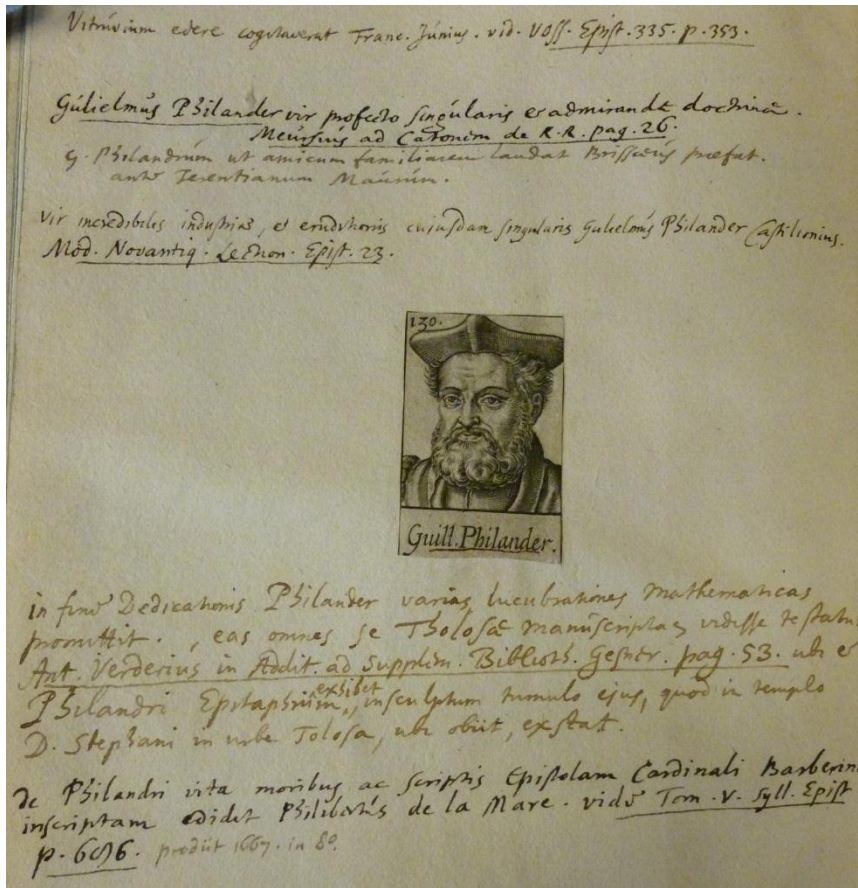 Vitruvium edere cogitaverat Franc. Junius. vid. Voss. Epist. 335. p. 353.
Gulielmus Philander vir profecto singularis et admirandae doctrinae.
Meursius ad Catonem de R. R. pag. 26.
G. Philandrum ut amicum familiarem laudat Brissaeus praefat.
ante Terentianum Maurum.
Vir incredibilis industriae, et eruditionis cujusdam singularis Gulielmus Philander Castilionius.
Mod. Novantiq. Lection. Epist. 23.
130.
Guill. Philander.
in fine Dedicationis Philander varias lucubrationes Mathematicas
promittit. , eas omnes se Tholosae manuscriptas vidisse testatu
Ant. Verderius in Addit. ad Supplem. Biblioth. Gesner. pag. 53. ubi et
Philandri Epitaphium exhibet, insculptum tumulo ejus, quod in templo
D. Stephani in urbe Tolosa, ubi obiit, exstat.
de Philandri vita moribus ac scriptis Epistolam Cardinali Barberin
inscriptam edidit Philibertus de la Mare. vide Tom. V. Syll. Epist
p. prodiit 1667. in 8o.